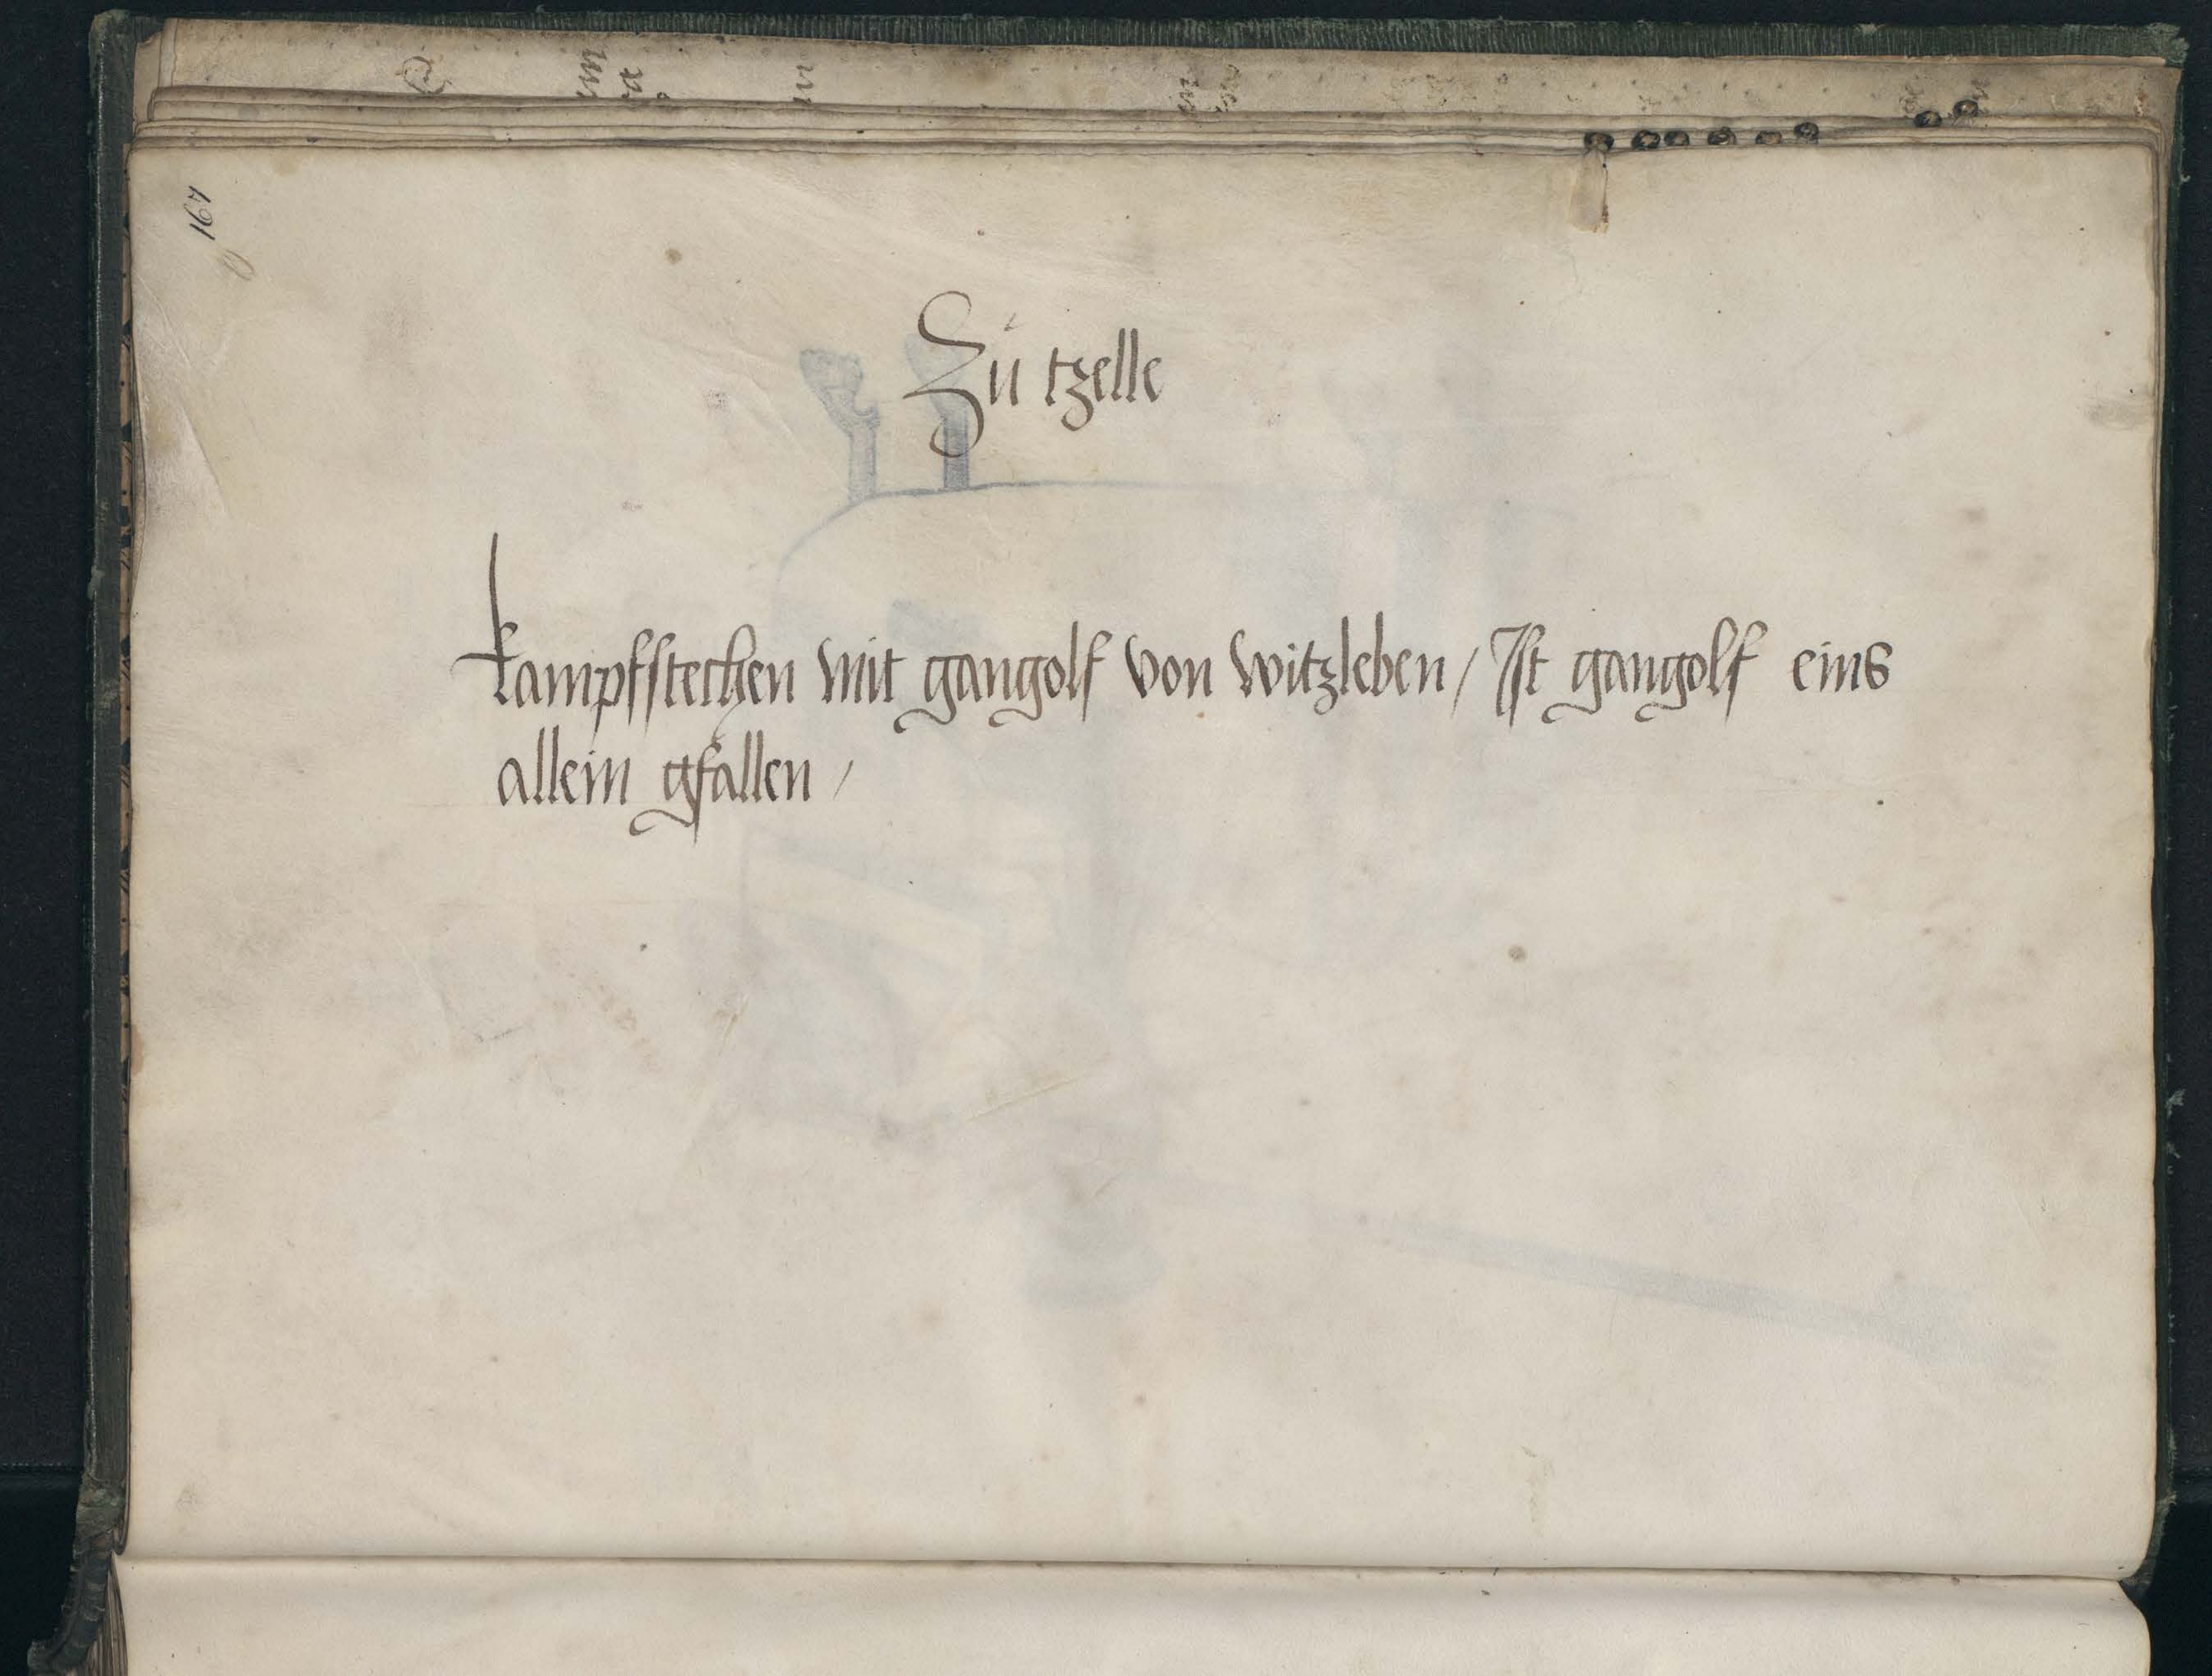 167
Zu tzelle
kampfstechen mit gangolf von witzleben / Ist gangolf eins
allein gfallen /